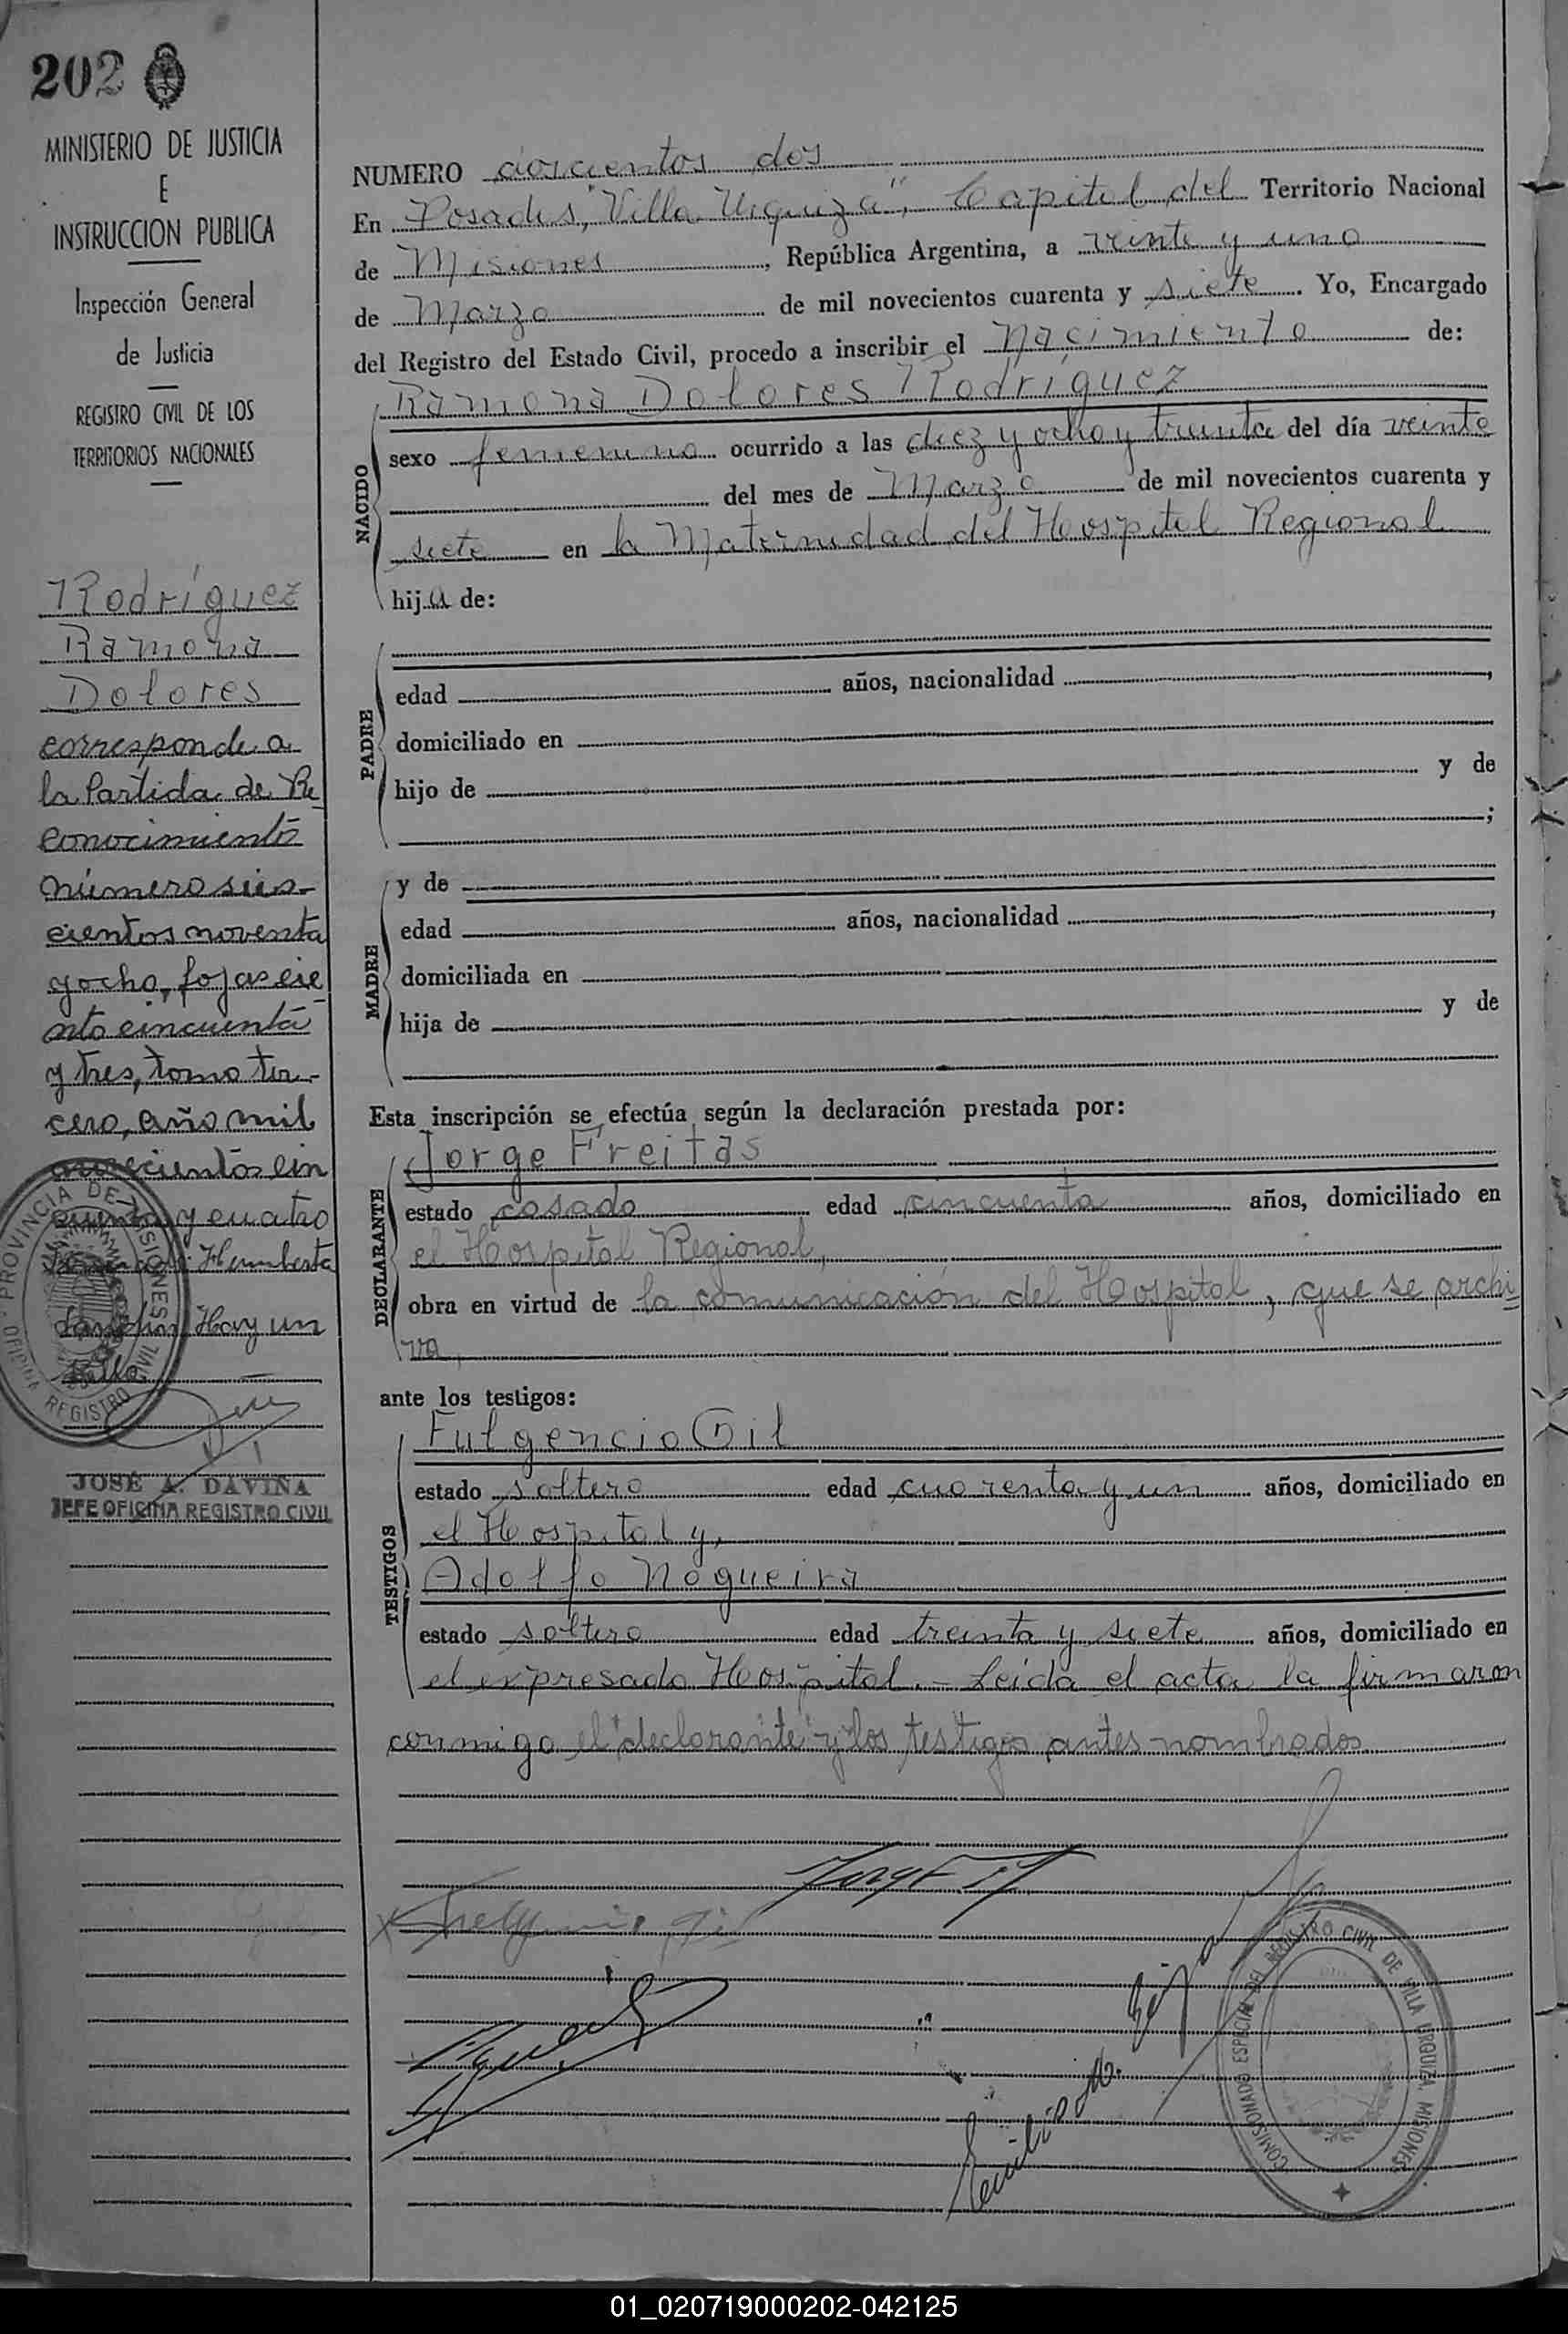 202
MINISTERIO DE JUSTICIA
E
INSTRUCCION PUBLICA
Inspección General
de Justicia
REGISTRO CIVIL DE LOS
TERRITORIOS NACIONALES
Rodríguez
Ramona
Dolores
corresponde a
la Partida de Re
conocimiento
número seis-
cientos noventa
y ocho, fojas cie
nto cincuenta
y tres, tomo ter-
cero, año mil
novecientos cin
cuenta y cuatro
Humberta
Hay un
sello
PROVINCIA DE MISIONES
OFICINA REGISTRO CIVIL
JOSÉ A. DAVIÑA
JEFE OFICINA REGISTRO CIVIL
NUMERO doscientos dos
En Posadas, "Villa Urquiza", Capital del Territorio Nacional
de Misiones, República Argentina, a veinte y uno
de Marzo de mil novecientos cuarenta y siete. Yo, Encargado
del Registro del Estado Civil, procedo a inscribir el Nacimiento de:
NACIDO
Ramona Dolores Rodríguez
sexo femenino ocurrido a las diez y ocho y treinta del día veinte
del mes de Marzo de mil novecientos cuarenta y
siete en la Maternidad del Hospital Regional
hija de:
PADRE
edad años, nacionalidad ,
domiciliado en
hijo de y de
;
MADRE
y de
edad años, nacionalidad ,
domiciliada en
hija de y de
Esta inscripción se efectúa según la declaración prestada por:
DECLARANTE
Jorge Freitas
estado casado edad cincuenta años, domiciliado en
el Hospital Regional,
obra en virtud de la comunicación del Hospital, que se archi-
va,
ante los testigos:
TESTIGOS
Fulgencio Gil
estado soltero edad cuarenta y un años, domiciliado en
el Hospital y,
Adolfo Nogueira
estado soltero edad treinta y siete años, domiciliado en
el expresado Hospital. - Leída el acta la firmaron
conmigo el declarante y los testigos antes nombrados
COMISIONADO ESPECIAL DEL REGISTRO CIVIL DE VILLA URQUIZA, MISIONES
01_020719000202-042125